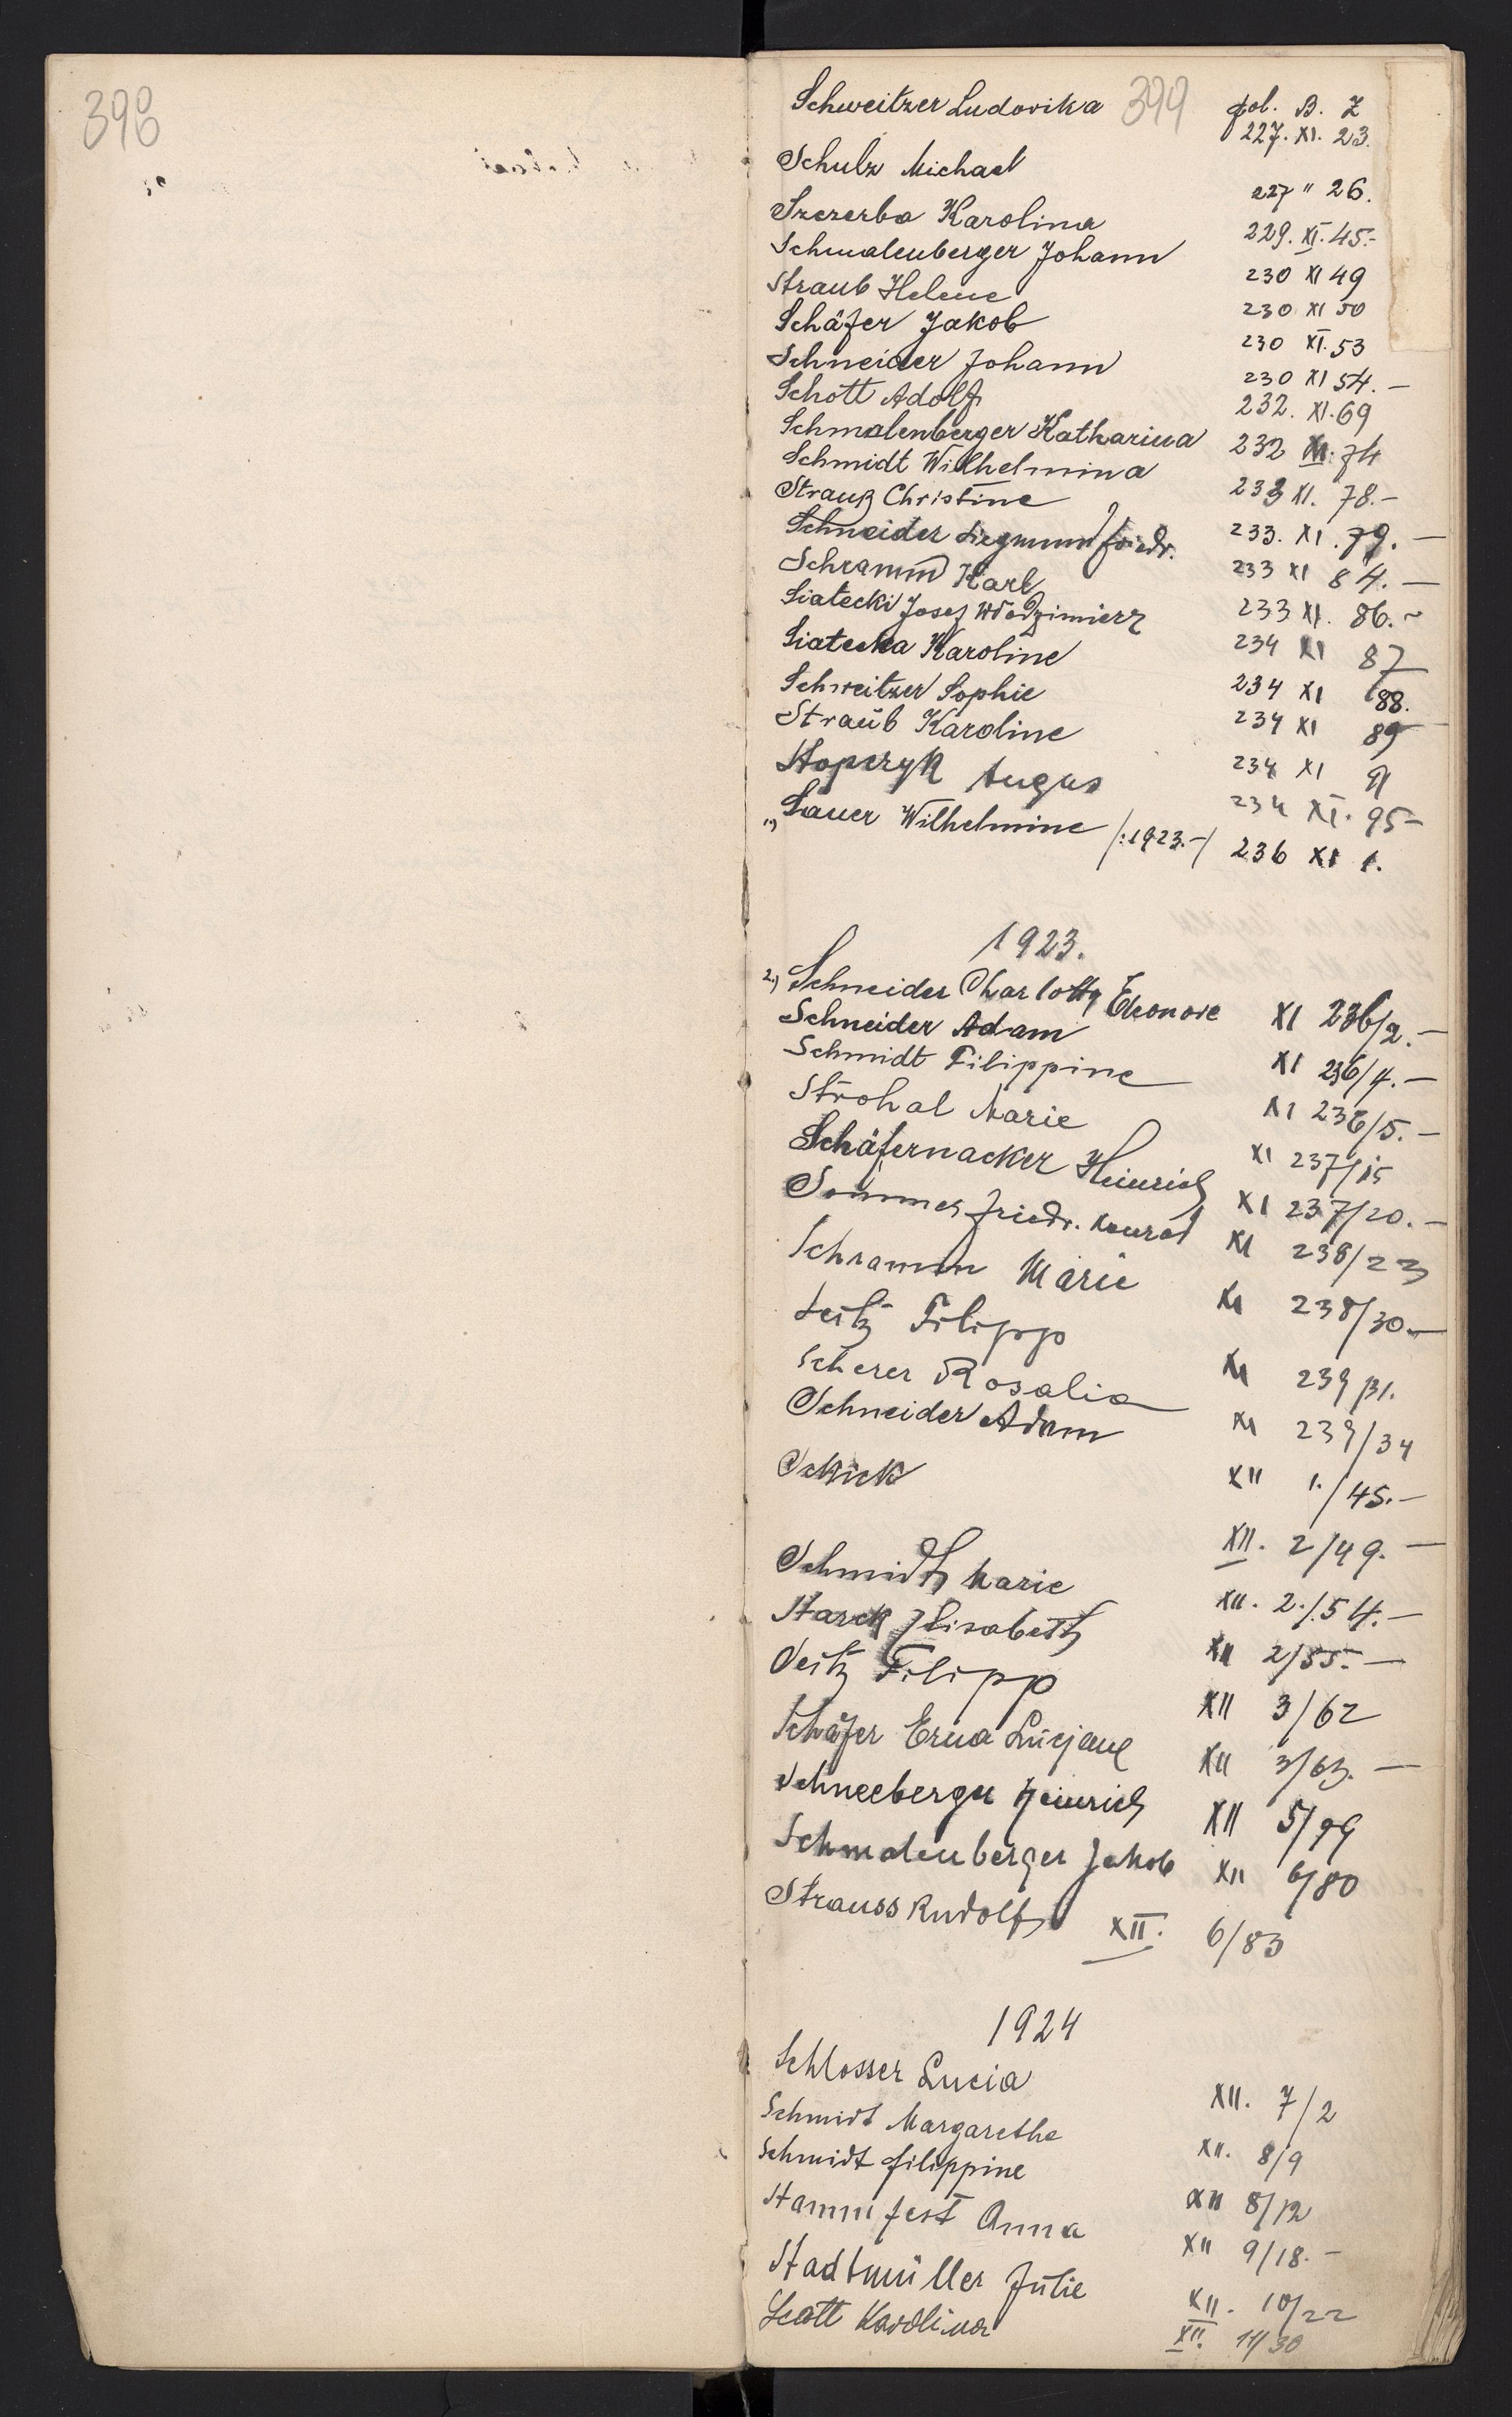 398
399
fol. B. Z
Schweitzer Ludovika 227. XI. 23.
Schulz Michael 227 " 26.
Szczerba Karolina 229. XI. 45.-
Schmalenberger Johann 230 XI 49
Straub Helene 230 XI 50
Schäfer Jakob 230 XI. 53
Schneider Johann 230 XI 54. -
Schott Adolf 232. XI. 69
Schmalenberger Katharina 232 XI. 74
Schmidt Wilhelmina 233 XI. 78.-
Strauß Christine 233. XI. 79. -
Schneider Siegmund Friedr. 233 XI 84. -
Schramm Karl 233 XI. 86. -
Siatecki Josef Włodzimierz 234 XI 87
Siatecka Karoline 234 XI 88.
Schweitzer Sophie 234 XI 89
Straub Karoline 234 XI 91
Stopczyk August 234 XI. 95-
1.) Sauer Wilhelmine /:1923.-/ 236 XI 1.
1923.
2.) Schneider Charlotte Eleonore XI 236/2. -
Schneider Adam XI 236/4. -
Schmidt Filippine XI 236/5. -
Strohal Marie XI 237/15
Schäfernacker Heinrich XI 237/20. -
Sommer Friedr. Konrad XI 238/23
Schramm Marie XI 238/30. -
Seitz Filipp XI 239/31.
Scherer Rosalia XI 239/34
Schneider Adam XII 1./45. -
Schick XII. 2/49. -
Schmidt Marie XII. 2./54. -
Starck Elisabeth XII 2/55. -
Seitz Filipp XII 3/62
Schäfer Erna Lucjane XII 3/63. -
Schneeberger Heinrich XII 5/79
Schmalenberger Jakob XII 6/80
Strauss Rudolf XII. 6/83
1924
Schlosser Lucia XII. 7/2
Schmidt Margarethe XII. 8/9
Schmidt Filippine XII 8/12
Stammfest Anna XII 9/18. -
Stadtmüller Julie XII. 10/22
Scott Karolina XII. 11/30